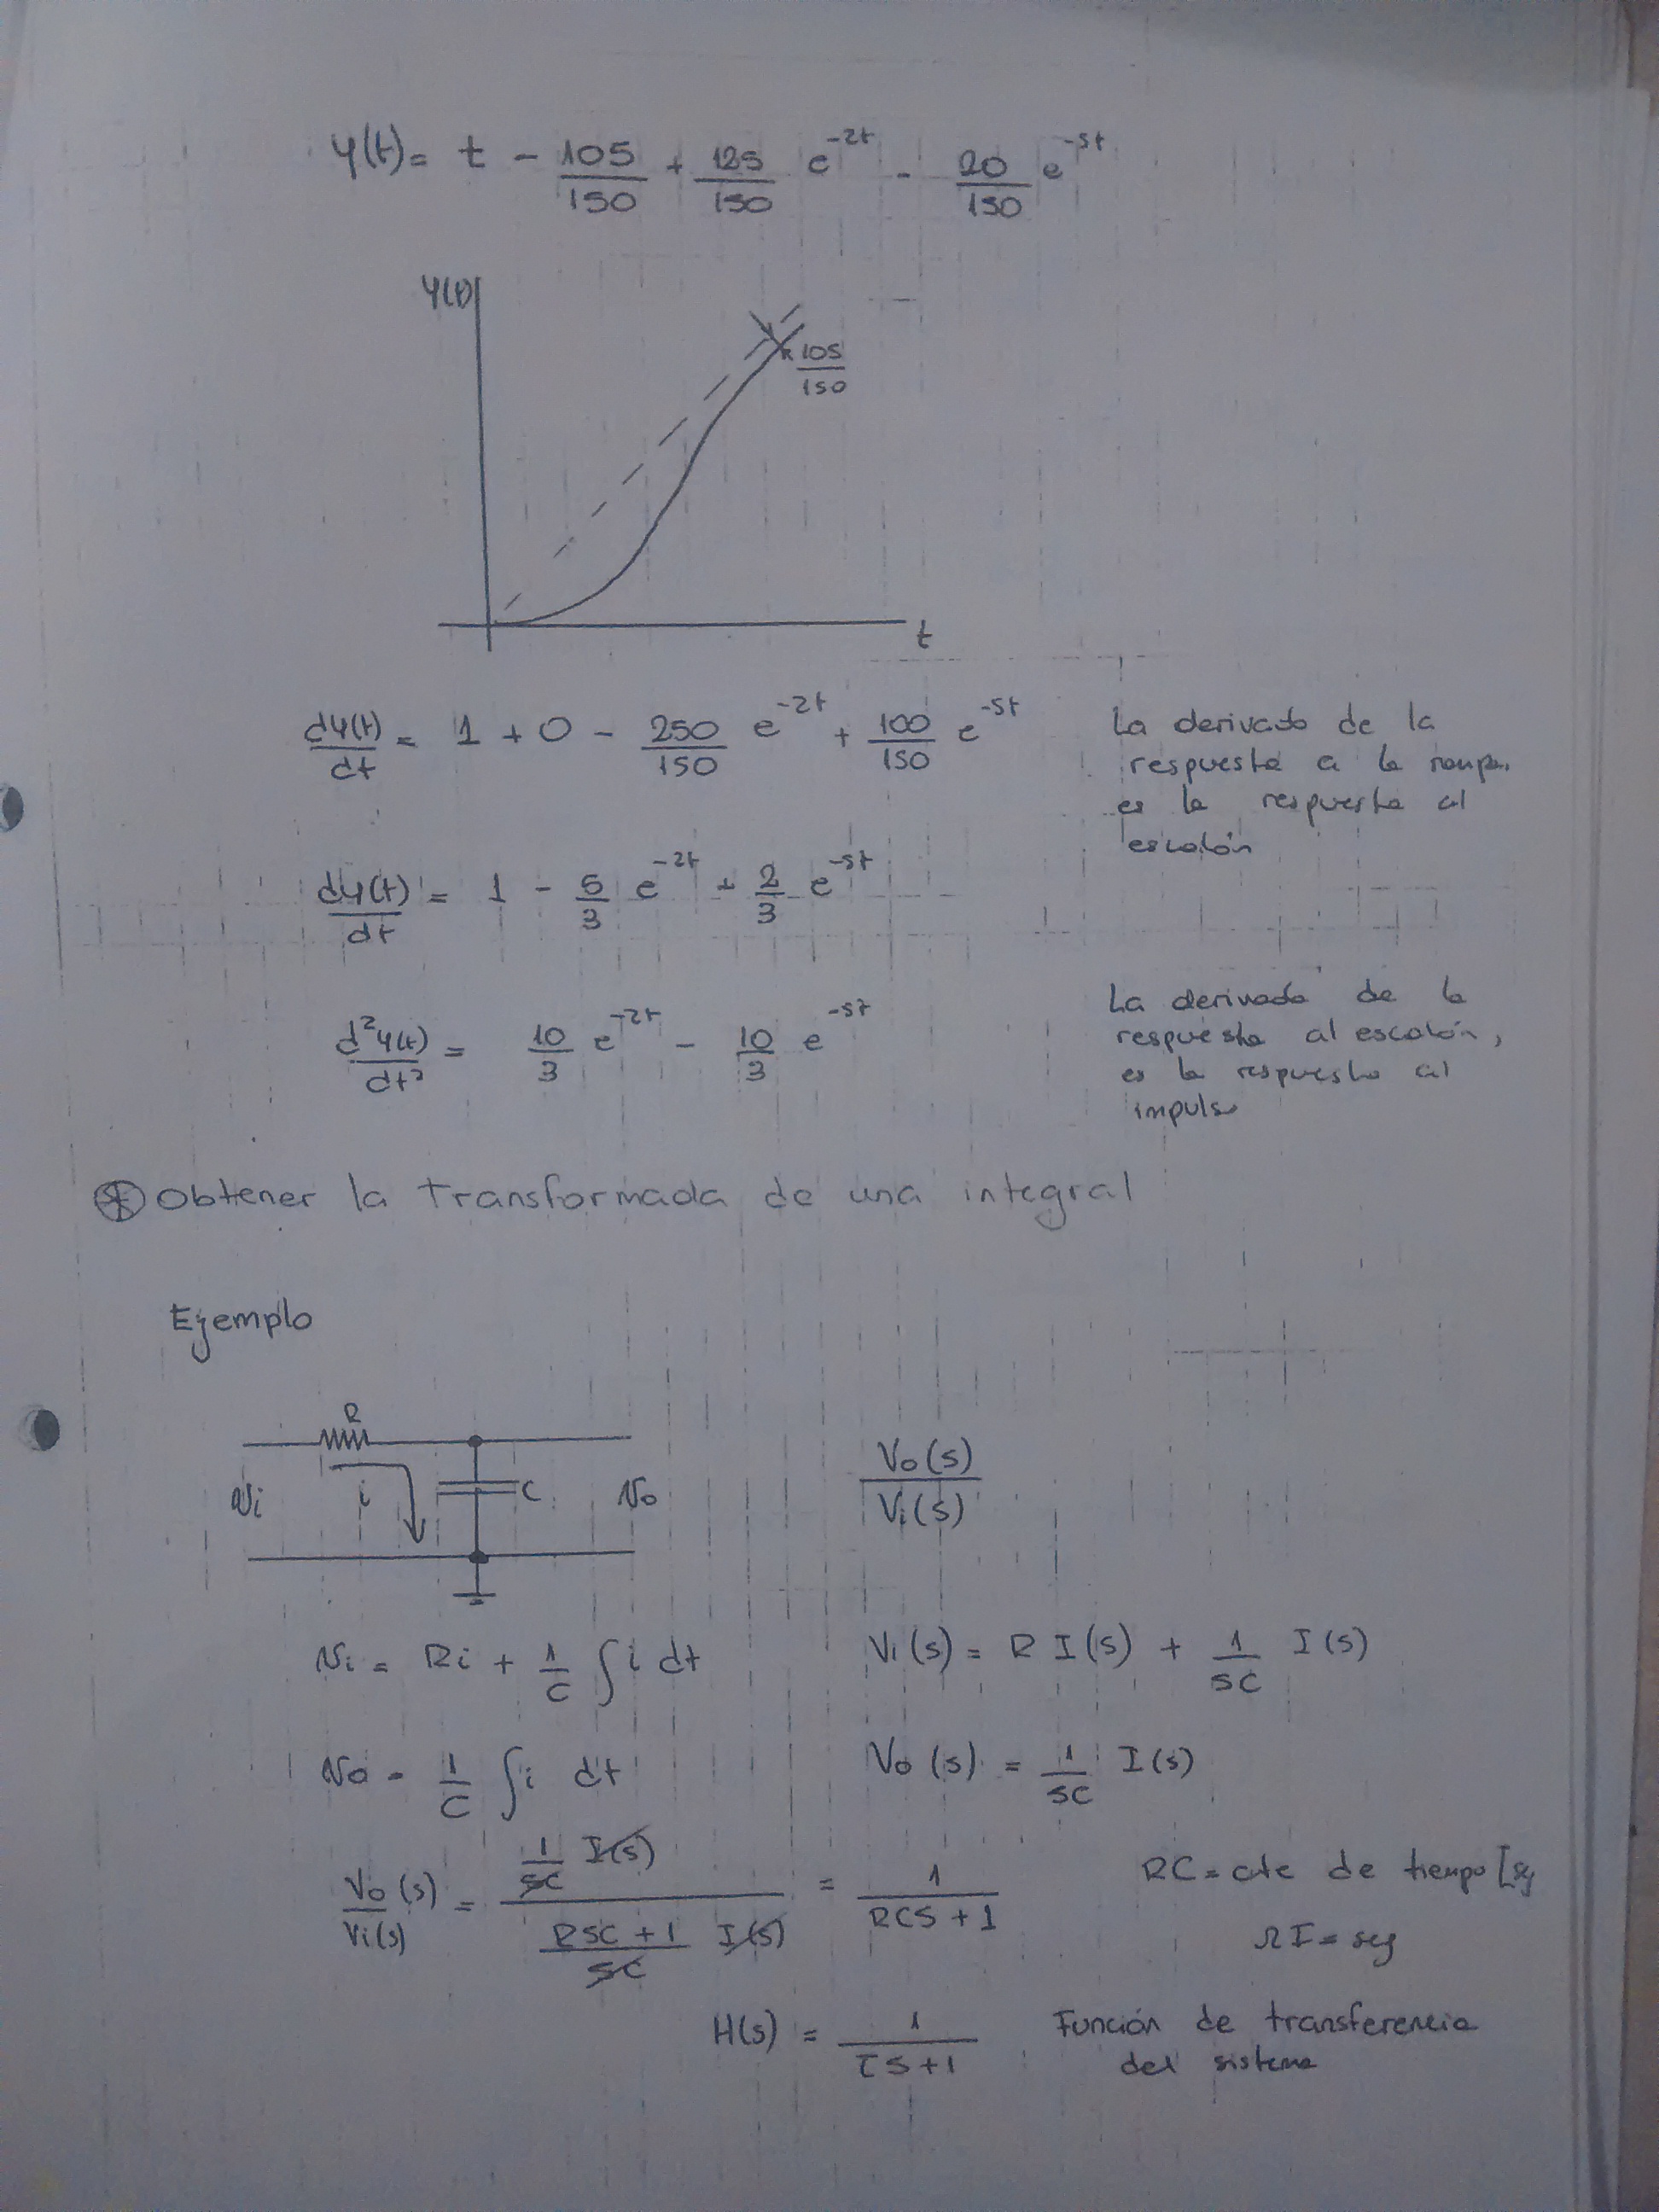 y(t) = t - 105/150 + 125/150 e^-2t - 20/150 e^-5t
y(t)
105/150
t
dy(t)/dt = 1 + 0 - 250/150 e^-2t + 100/150 e^-5t
La derivada de la
respuesta a la rampa,
es la respuesta al
escalón
dy(t)/dt = 1 - 5/3 e^-2t + 2/3 e^-5t
d²y(t)/dt² = 10/3 e^-2t - 10/3 e^-5t
La derivada de la
respuesta al escalón,
es la respuesta al
impulso
* Obtener la transformada de una integral
Ejemplo
R
Vi i C Vo
Vo(s)/Vi(s)
Vi = Ri + 1/C ∫ i dt
Vi(s) = R I(s) + 1/SC I(s)
Vo = 1/C ∫ i dt
Vo(s) = 1/SC I(s)
Vo(s)/Vi(s) = (1/SC I(s)) / ((RSC + 1)/SC I(s)) = 1/(RCS + 1)
RC = cte de tiempo [sg
ΩF = seg
H(s) = 1/(τS + 1)
Función de transferencia
del sistema